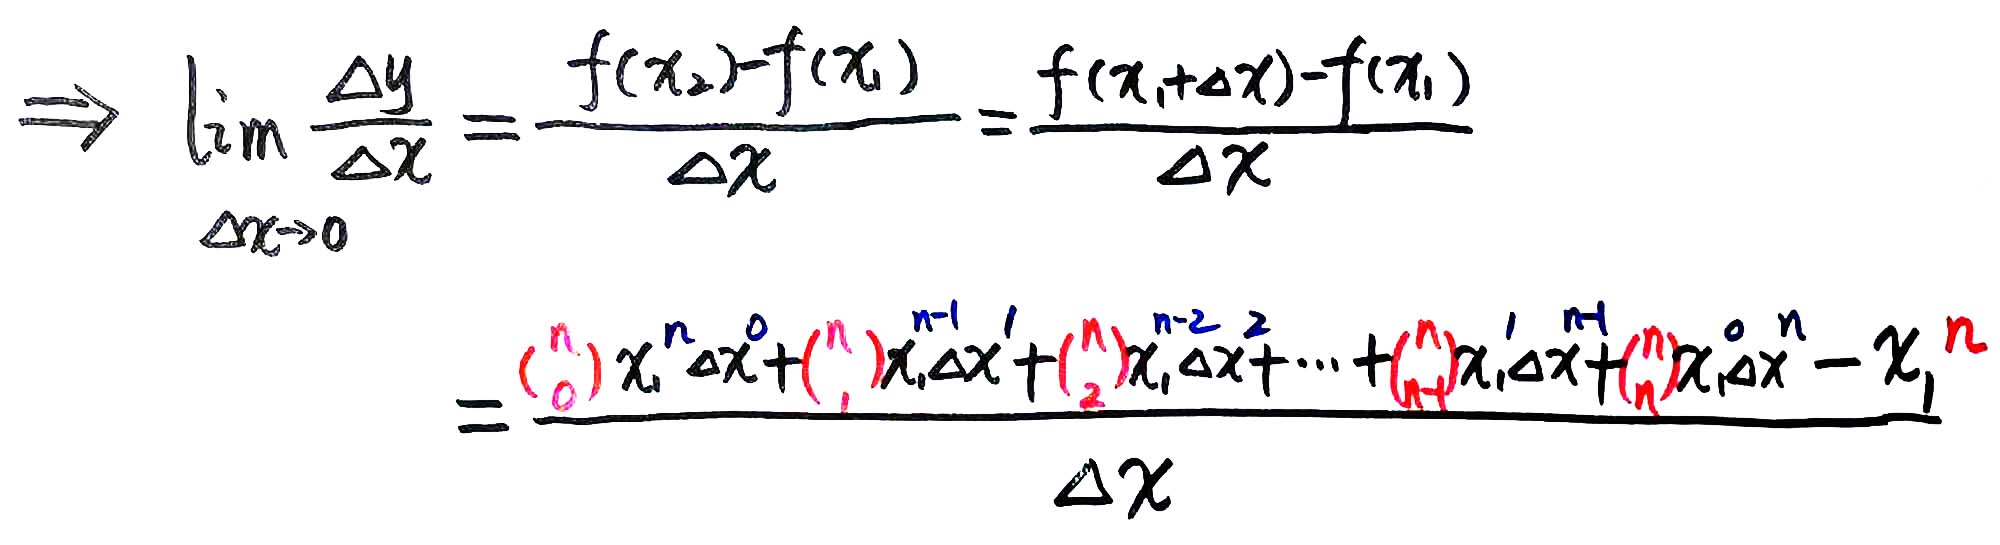 ⇒ lim Δx→0 Δy/Δx = (f(x₂)-f(x₁))/Δx = (f(x₁+Δx)-f(x₁))/Δx
= ((n 0) x₁ⁿ Δx⁰ + (n 1) x₁ⁿ⁻¹ Δx¹ + (n 2) x₁ⁿ⁻² Δx² + ... + (n n-1) x₁¹ Δxⁿ⁻¹ + (n n) x₁⁰ Δxⁿ - x₁ⁿ)/Δx